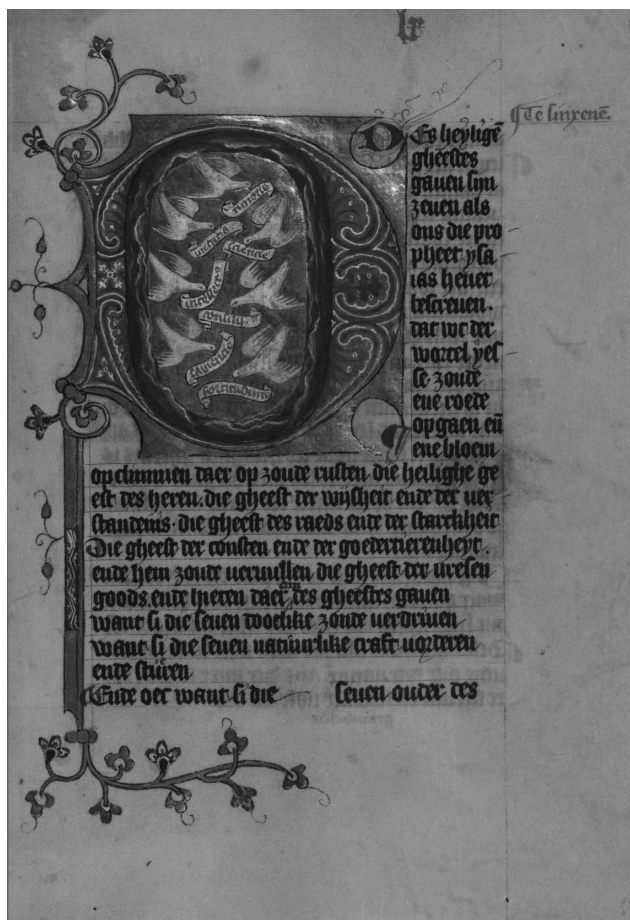 lx
¶Te sinxenē
Des heylighē
gheestes
gauen sijn
zeuen als
ons die pro
pheet ysa
ias heuet
bescreuen.
dat wt der
wortel yes
se zoude
ene roede
opgaen en̄
ene bloem
opclimmen daer op zoude rusten die heilighe ge
est des heren. die gheest der wijsheit ende der uer
standenis. die gheest des raeds ende der starckheit
Die gheest der consten ende der goedertierenheyt.
ende hem zoude ueruullen die gheest der uresen
goods. ende hieten daer om des gheestes gauen
want si die seuen dootlike zonde uerdriuen
want si die seuen natuurlike craft uorderen
ende stueren
Ende oec want si die seuen ouder des
timoris
pietatis
sciencie
intellectus
consilij
sapiencie
fortitudinis